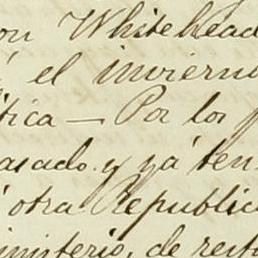 on Whitehead
el invierno
tica — Por los
asado y yá ten
otra Republic
inisterio, de rest